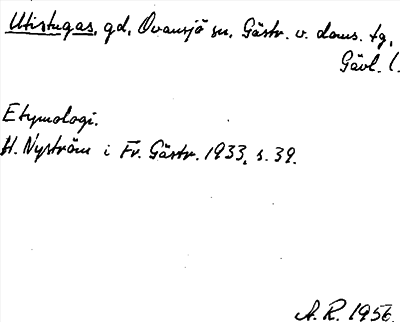 Utistugas, gd, Ovansjö sn, Gästr. v. doms. tg,
Gävl. l.
Etymologi.
H. Nyström i Fr. Gästr. 1933, s. 39.
A. R. 1956.